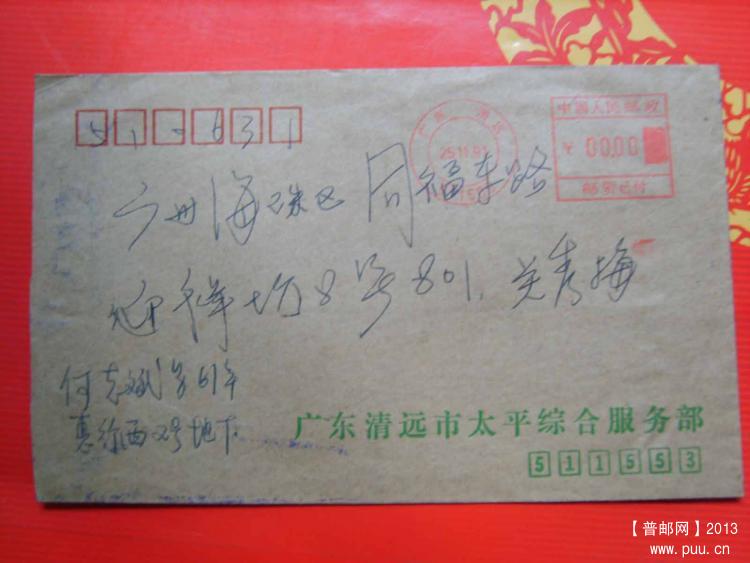 510631
中国人民邮政
¥ 00.00
邮资已付
广东 清远
25.11.91
广州海珠区同福东路
祥坊8号801. 关秀梅
何志斌
西 2号地下
广东清远市太平综合服务部
511553
【普邮网】2013
www.puu.cn